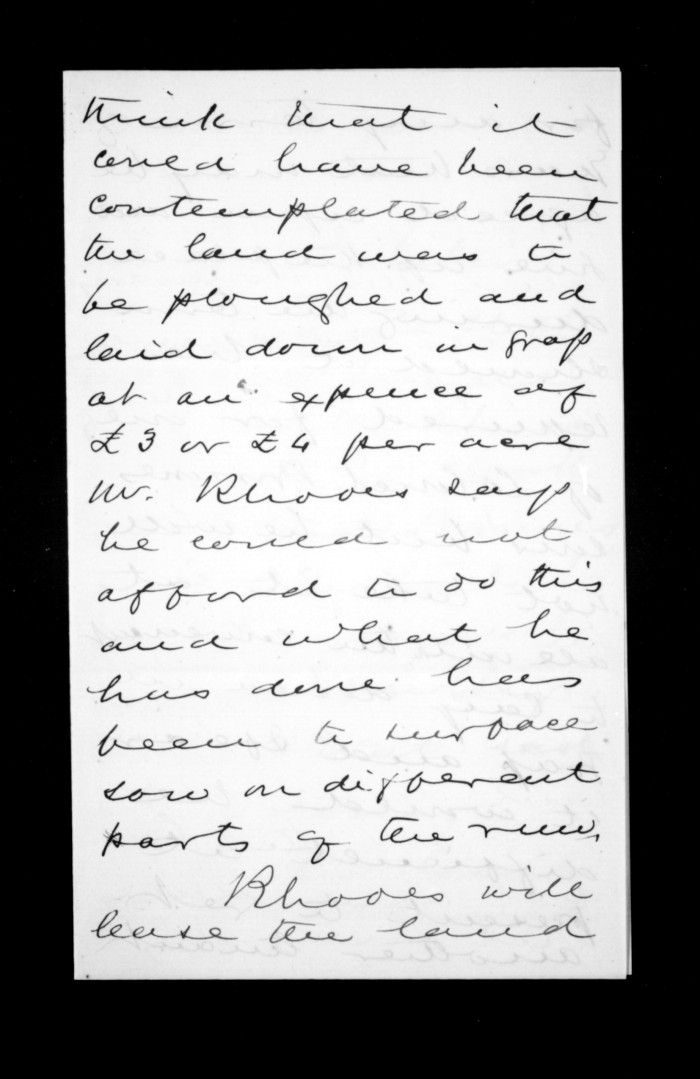 think that it
could have been
contemplated that
the land was to
be ploughed and
laid down in grass
at an expence of
£3 or £4 per acre
Mr. Rhodes says
he could not
afford to do this
and what he
has done has
been to surface
sow on different
parts of the run.
Rhodes will
lease the land